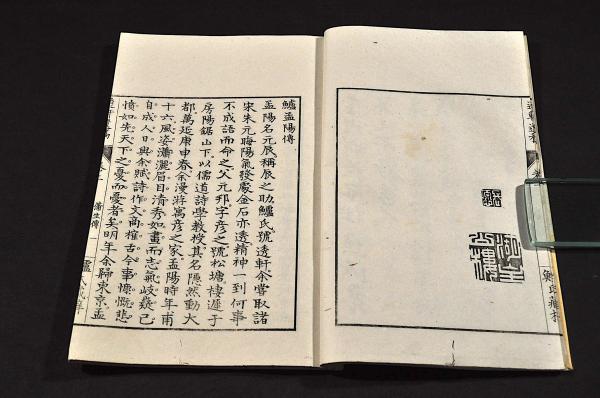 鱸孟陽傳
孟陽名元辰稱辰之助鱸氏號透軒余嘗取諸
宋朱元晦陽氣發處金石亦透精神一到何事
不成語而命之父元邦字彥之號松塘棲遲于
房陽鋸山下以儒道詩學教授其名隱然動大
都萬延庚申春余漫游寓彥之家孟陽時年甫
十六風姿瀟灑眉目清秀如畫而志氣岐嶷已
自成人日與余賦詩作文商榷古今事慷慨悲
憤如先天下之憂而憂者矣明年余歸東京孟